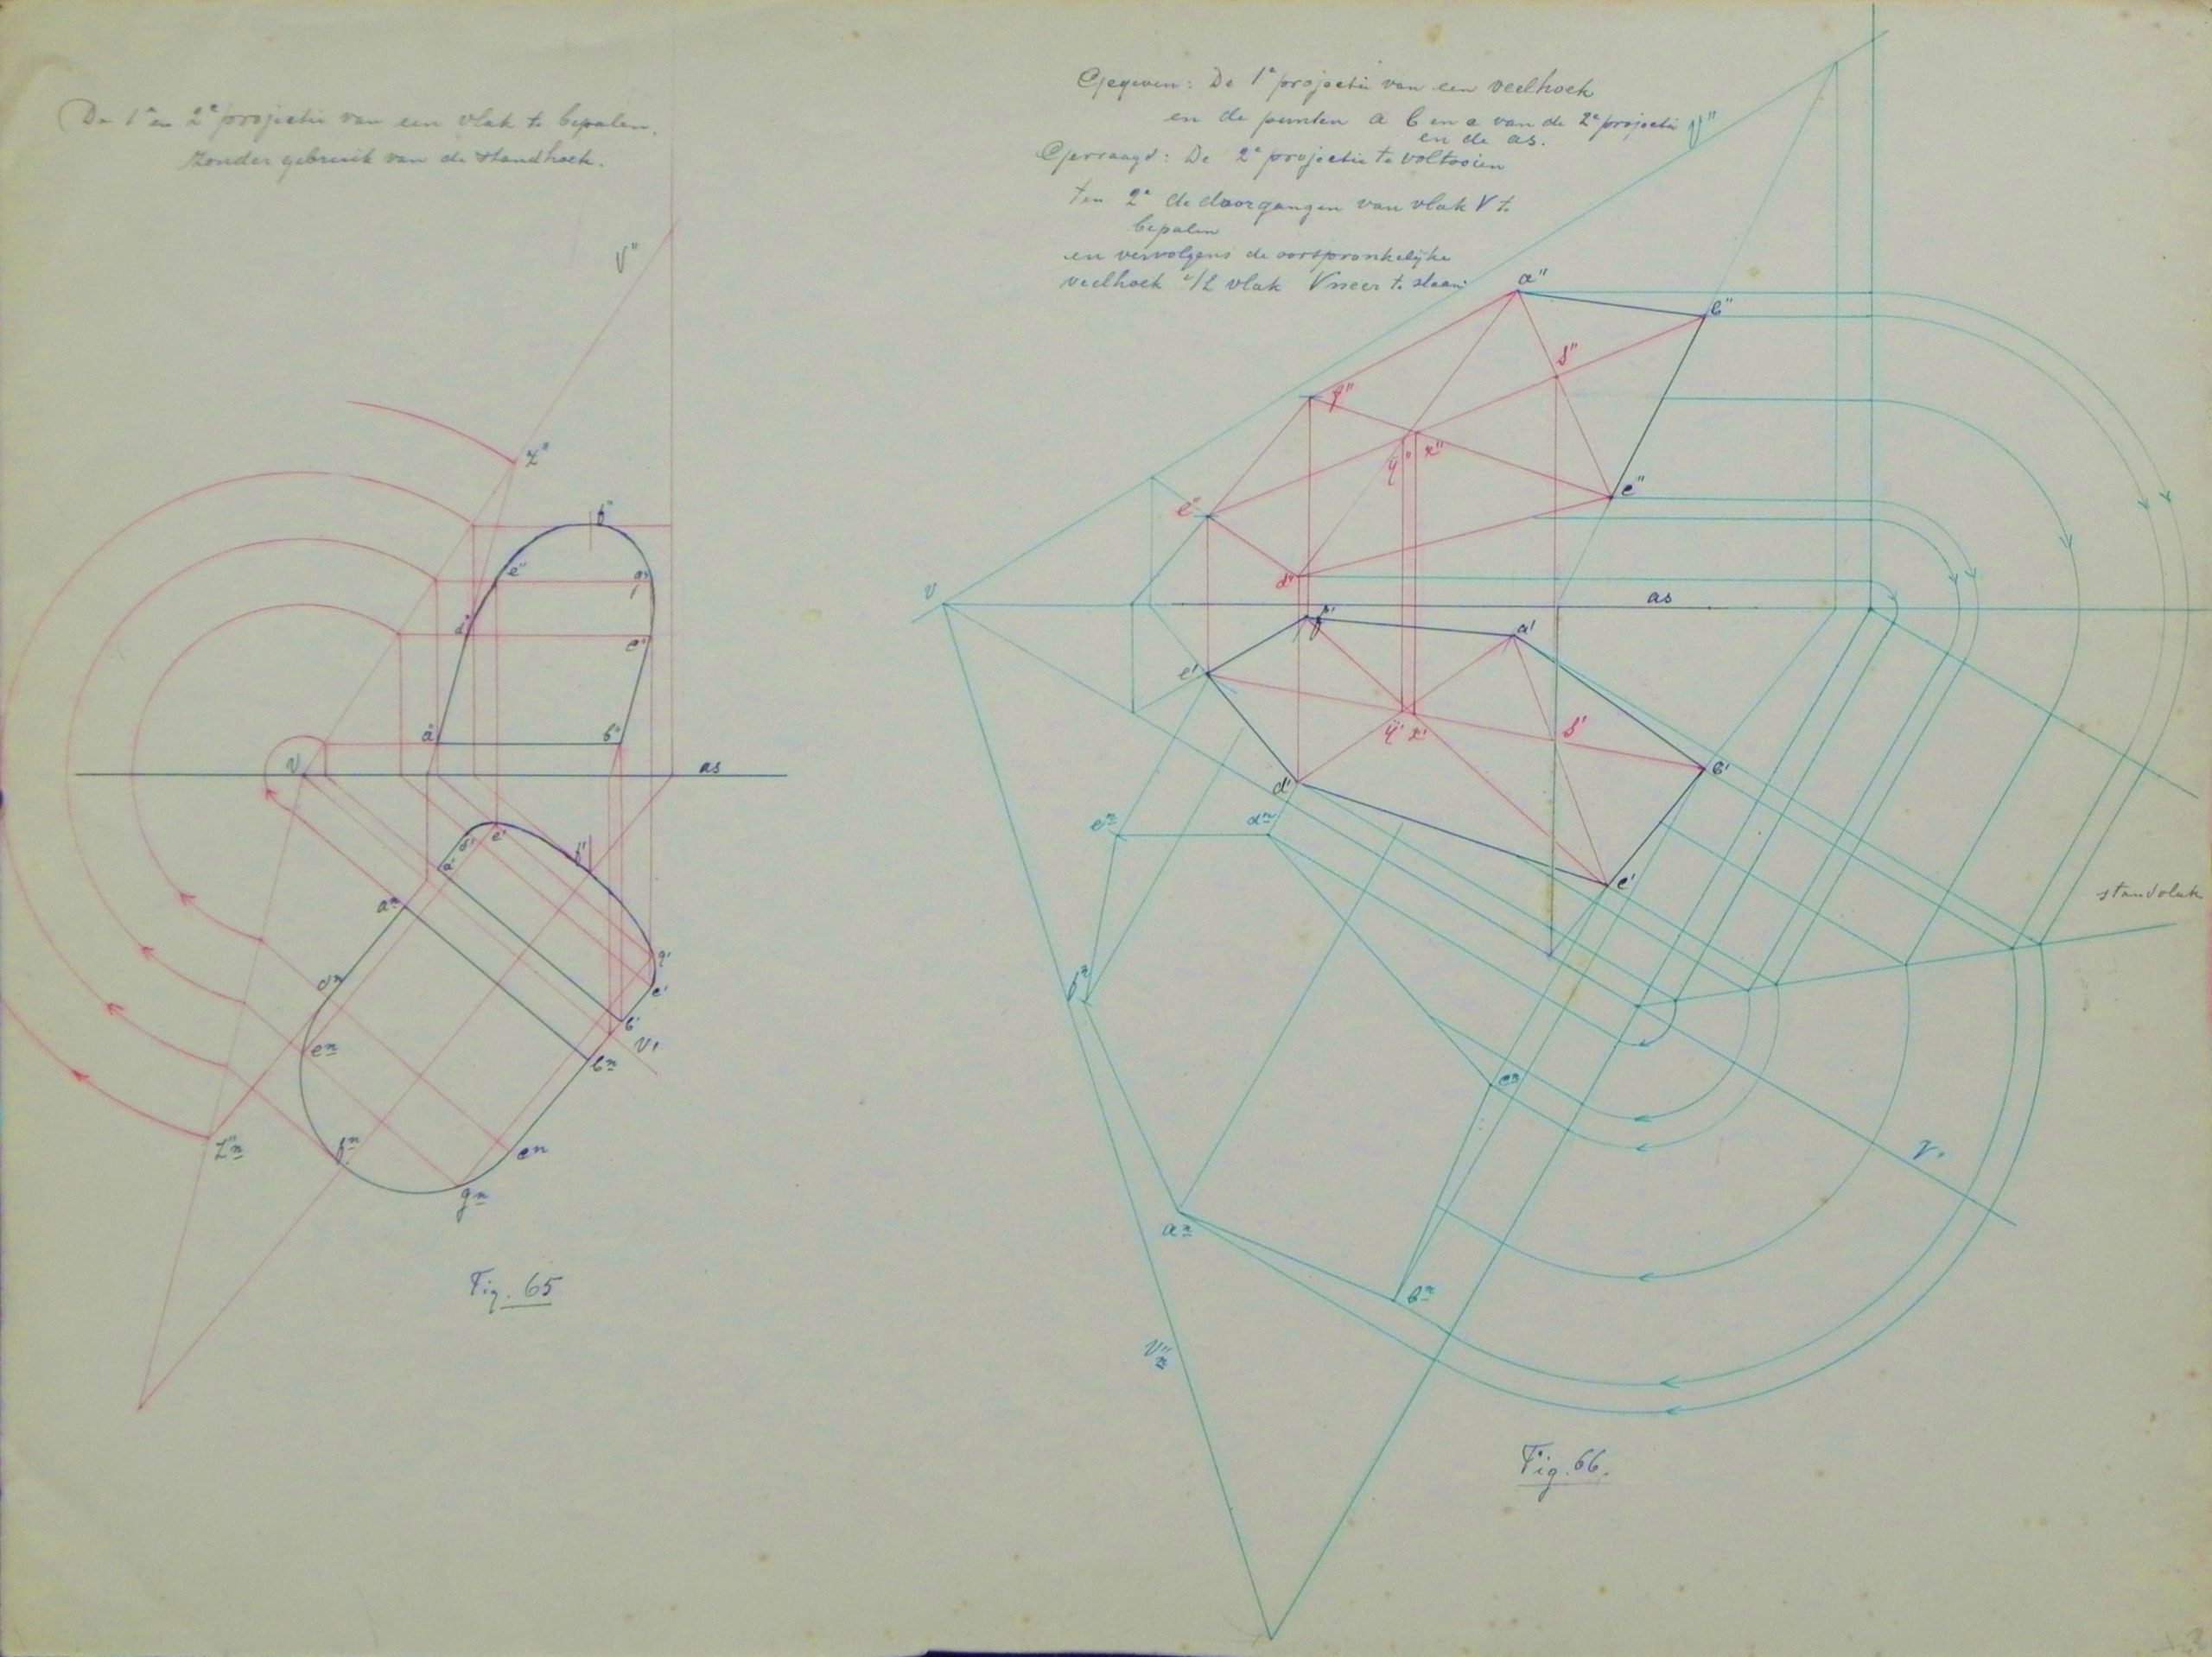 De 1e en 2e projectie van een vlak te bepalen.
zonder gebruik van de standhoek.
V"
z"
f"
e"
g"
d"
c"
a"
b"
V
as
a'
d'
e'
f'
g'
c'
b'
V'
an
dn
en
bn
Z"n
fn
cn
gn
Fig. 65
Gegeven: De 1e projectie van een veelhoek
en de punten a b en c van de 2e projectie
en de as.
Gevraagd: De 2e projectie te voltooien
ten 2e de doorgangen van vlak V te
bepalen
en vervolgens de oorspronkelijke
veelhoek i/h vlak V neer te slaan
V"
a"
b"
s"
f"
y"
x"
c"
e"
d"
V
as
f'
a'
e'
y' x'
s'
b'
d'
c'
en
dn
standvlak
fn
cn
V'
an
bn
V"n
Fig. 66.